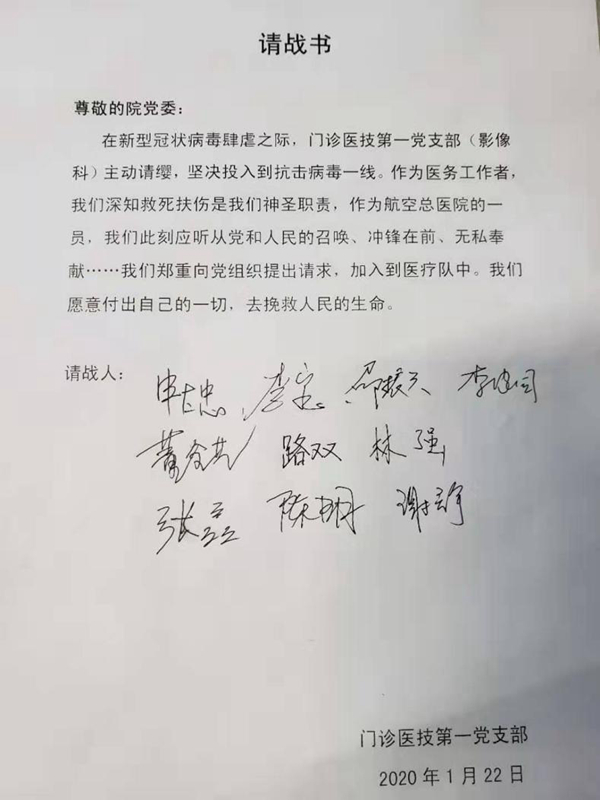 请战书
尊敬的院党委：
在新型冠状病毒肆虐之际，门诊医技第一党支部（影像
科）主动请缨，坚决投入到抗击病毒一线。作为医务工作者，
我们深知救死扶伤是我们神圣职责，作为航空总医院的一
员，我们此刻应听从党和人民的召唤、冲锋在前、无私奉
献……我们郑重向党组织提出请求，加入到医疗队中。我们
愿意付出自己的一切，去挽救人民的生命。
请战人：
路双 林强
张磊 陈明
门诊医技第一党支部
2020年1月22日